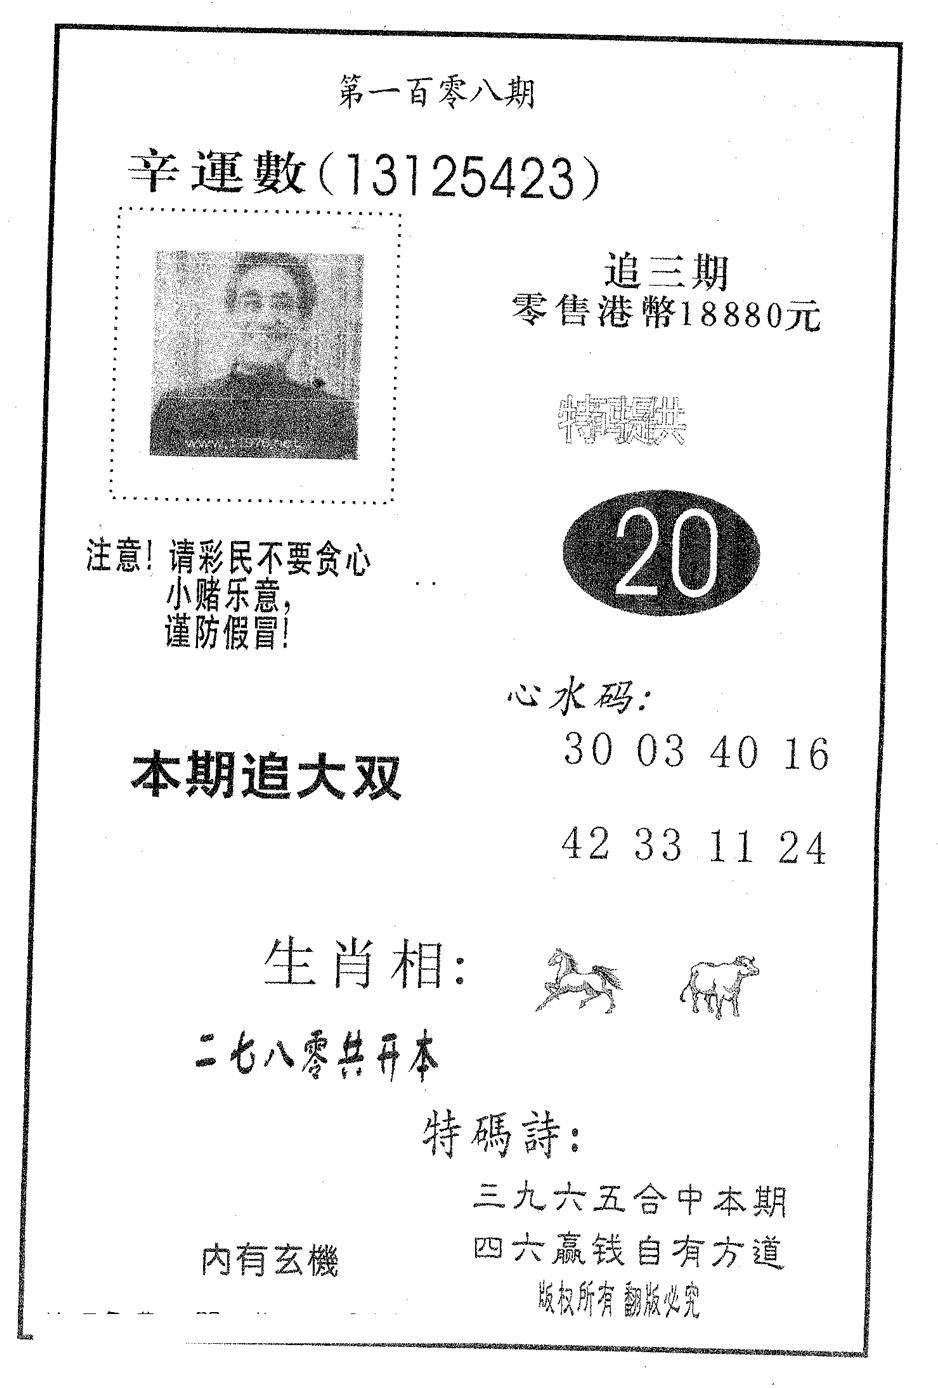 第一百零八期
辛運數(13125423)
追三期
零售港幣18880元
特码提共
20
注意!请彩民不要贪心
小赌乐意,
谨防假冒!
心水码:
30 03 40 16
42 33 11 24
本期追大双
生肖相:
二七八零共开本
特碼詩:
三九六五合中本期
四六赢钱自有方道
内有玄機
版权所有 翻版必究